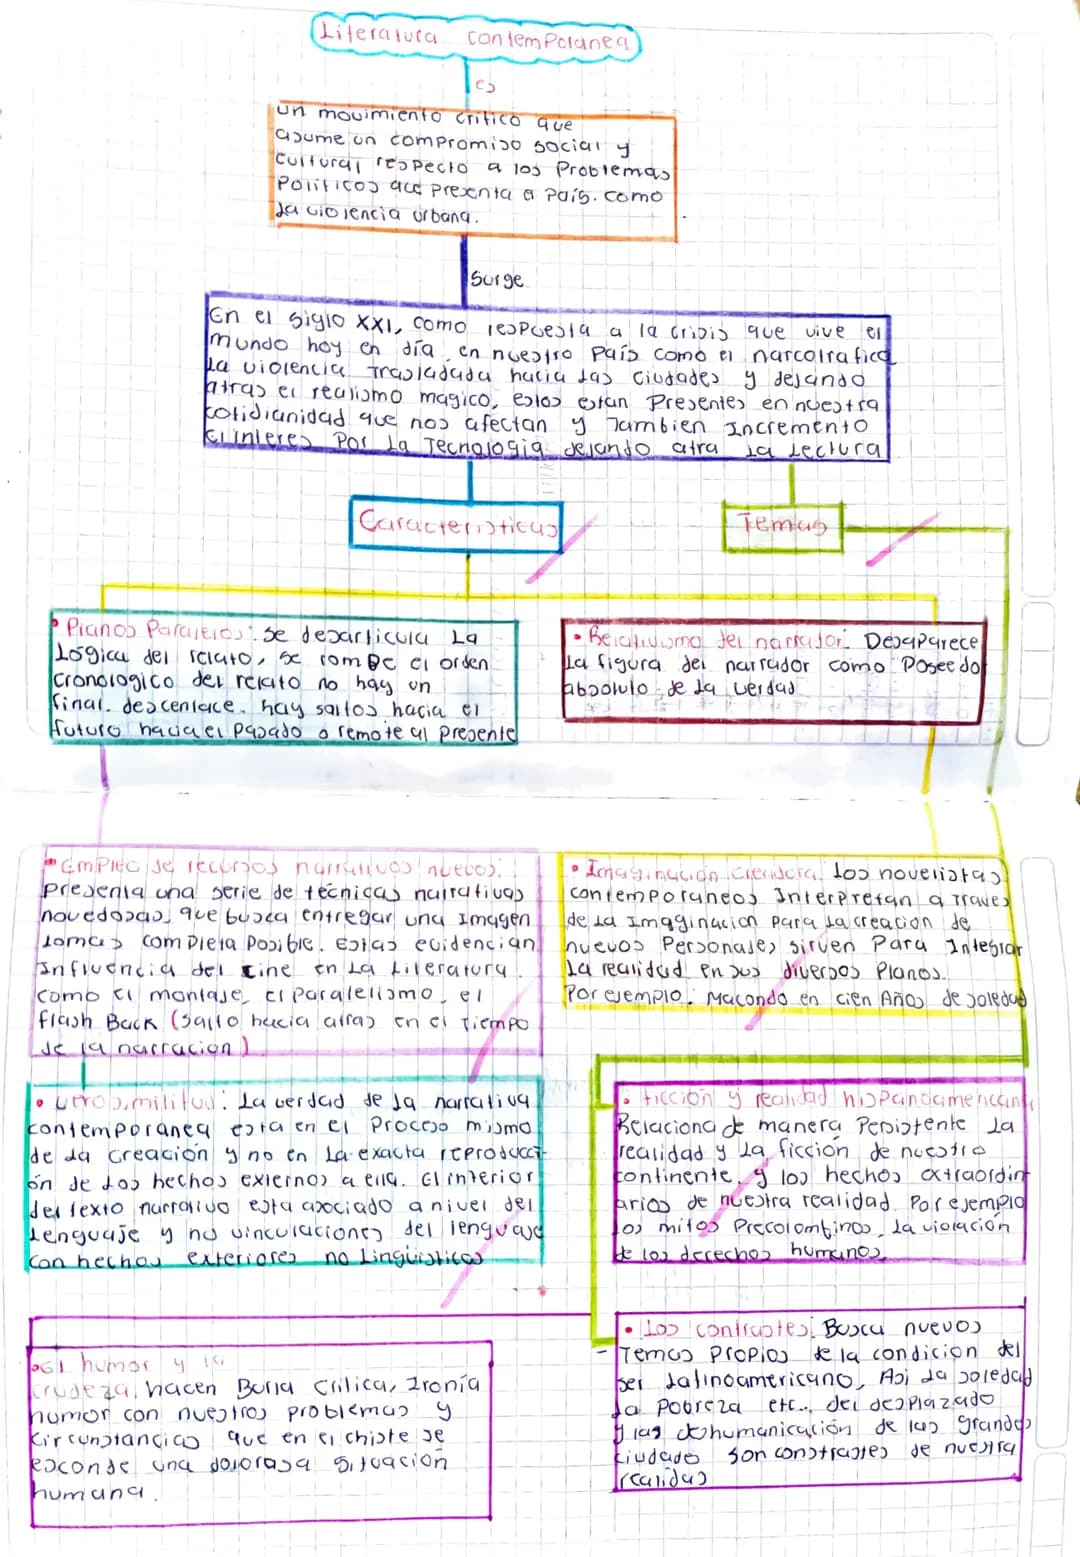 Literatura contemporanea
es
un movimiento critico que
asume un compromiso social y
cultural respecto a los Problemas
Politicos que presenta a País. como
La violencia urbana.
Surge
En el siglo XXI, como respuesta a la crisis que vive el
mundo hoy en día en nuestro País como el narcotrafico
La violencia trasladada hacia las ciudades y dejando
atras el realismo magico, estos estan Presentes en nuestra
cotidianidad que nos afectan y Tambien Incremento
el interes Por La Tecnologia dejando atra La Lectura
Caracteristicas
Temas
• Planos Paralelos: se desarticula La
Lógica del relato, se rompe el orden
cronologico del relato no hay un
final. descenlace. hay saltos hacia el
futuro hacia el pasado o remote al presente
• Relativismo del narrador: Desaparece
La figura del narrador como Poseedo
absoluto de La verdad
• Empleo de recursos narrativos nuevos:
Presenta una serie de técnicas narrativas
novedosas, que busca entregar una Imagen
lo mas completa posible. Estas evidencian
Influencia del cine en La Literatura
como el montaje, el paralelismo, el
flash Back (salto hacia atras en el Tiempo
de la narracion)
• Imaginación creadora: los novelistas
contemporaneos Interpretan a Traves
de La Imagginacion Para La creacion de
nuevos Personajes sirven Para Integrar
La realidad en sus diversos Planos.
Por ejemplo: Macondo en cien Años de soledad
• verosimilitud: La verdad de La narrativa
contemporanea esta en el Proceso mismo
de La creación y no en La exacta reproducci-
ón de Los hechos externos a ella. El interior
del texto narrativo esta asociado a nivel del
Lenguaje y no vinculaciones del lenguaje
con hechos exteriores no Lingüisticos
• ficción y realidad hispandamericana
Relaciona de manera Persistente La
realidad y La ficción de nuestro
continente, y los hechos extraordin
arios de nuestra realidad. Por ejemplo
los mitos Precolombinos, La violación
de los derechos humanos
• El humor y la
crudeza, hacen Burla Critica, Ironía
humor con nuestros problemas y
circunstancias que en el chiste se
esconde una dolorasa situación
humana.
• Los contrastes: Busca nuevos
- Temas Propios de la condicion del
ser Latinoamericano, Asi La soledad
La Pobreza etc., del desplazado
y las dehumanicación de las grandes
ciudades son constrastes de nuestra
realidas